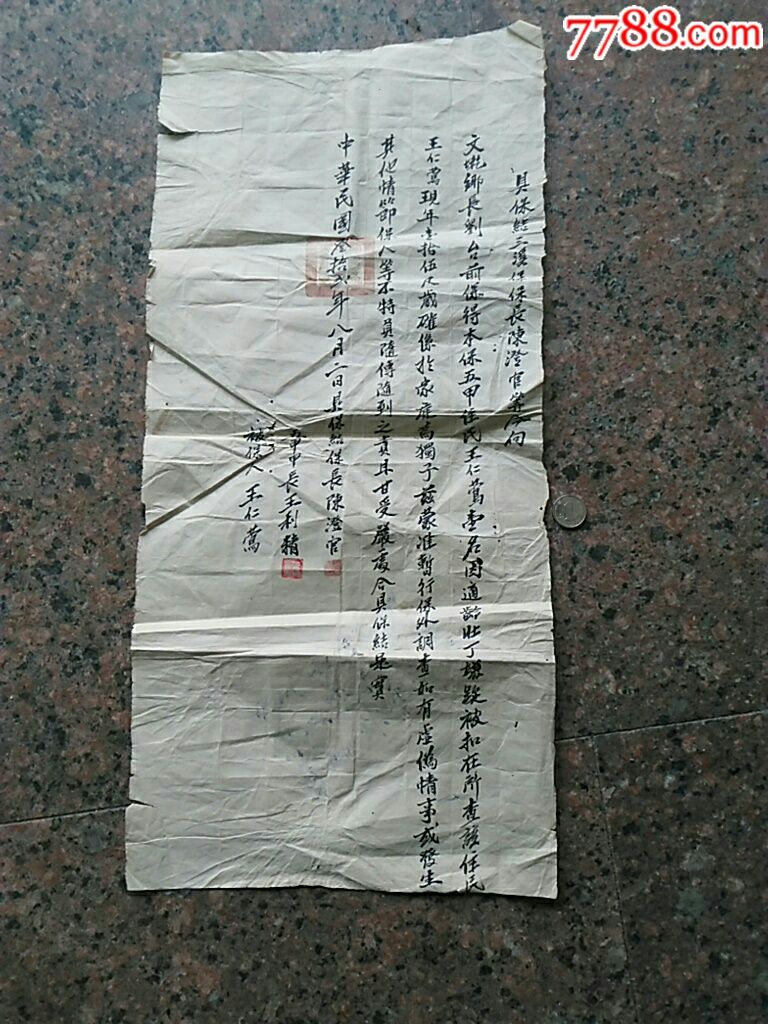 7788.com
具保結三溪保保長陳澄官等今向
文 鄉長劉 台前保得本保五甲住民王仁萬壹名因適齡壯丁嫌疑被扣在所查該住民
王仁萬現年壹拾伍 歲確係於家庭為獨子茲蒙准暫行保外調查如有虛偽情事或發生
其他情節保人等不特負隨傳隨到之責且甘受嚴處合具保結是實
中華民國叁拾六年八月二日具保結保長陳澄官
五甲甲長王利
被保人 王仁萬